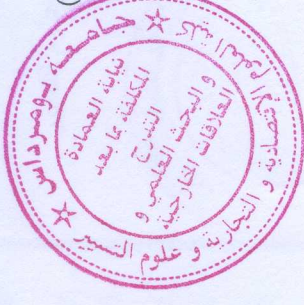 جامعة بومرداس
كلية العلوم الاقتصادية و التجارية و علوم التسيير
نيابة العمادة
المكلفة بما بعد
التدرج
و البحث العلمي و
العلاقات الخارجية